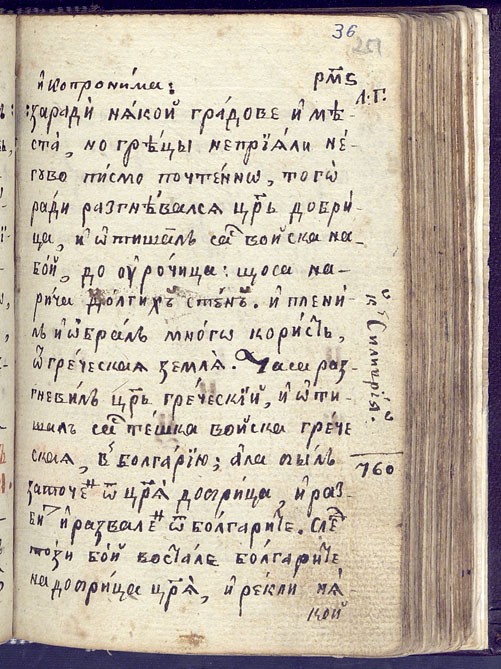 36
251
и҆ копрони́ма:
рм҃ѕ
л. г.
заради̇ нѧкои̇ гра́дове и҆ мѣ-
ста̀, но грѣ́цы непрїѧли не-
гово пи́смо почтеннѡ, тогѡ̀
ради разгнѣвалсѧ цр҃ь добри-
ца, и҆ ѿтишалъ са вои́ска на-
бо́й, до оурочи́ца: щоса на-
рича до́лгихъ стѣ́нъ. и҆ плени-
лъ и҆ ѡ҆бралъ мно́гѡ користь,
ѿ гре́ческаѧ землѧ̀. Часа раз-
гнебилъ цр҃ь гре́ческїй, и҆ ѿти-
шалъ са пе́шка войска грече
ская, в болга́рїю; а҆ла былъ
започенъ ѿ цр҃ѧ̀ добрица, и҆ раз-
бит и҆ развале́нъ ѿ болгарите. слѣ
този бо́й воста́ле болгарите
на добри́ца цр҃ѧ̀, и҆ рекли нѧ-
кои
к Силигрїѧ.
760